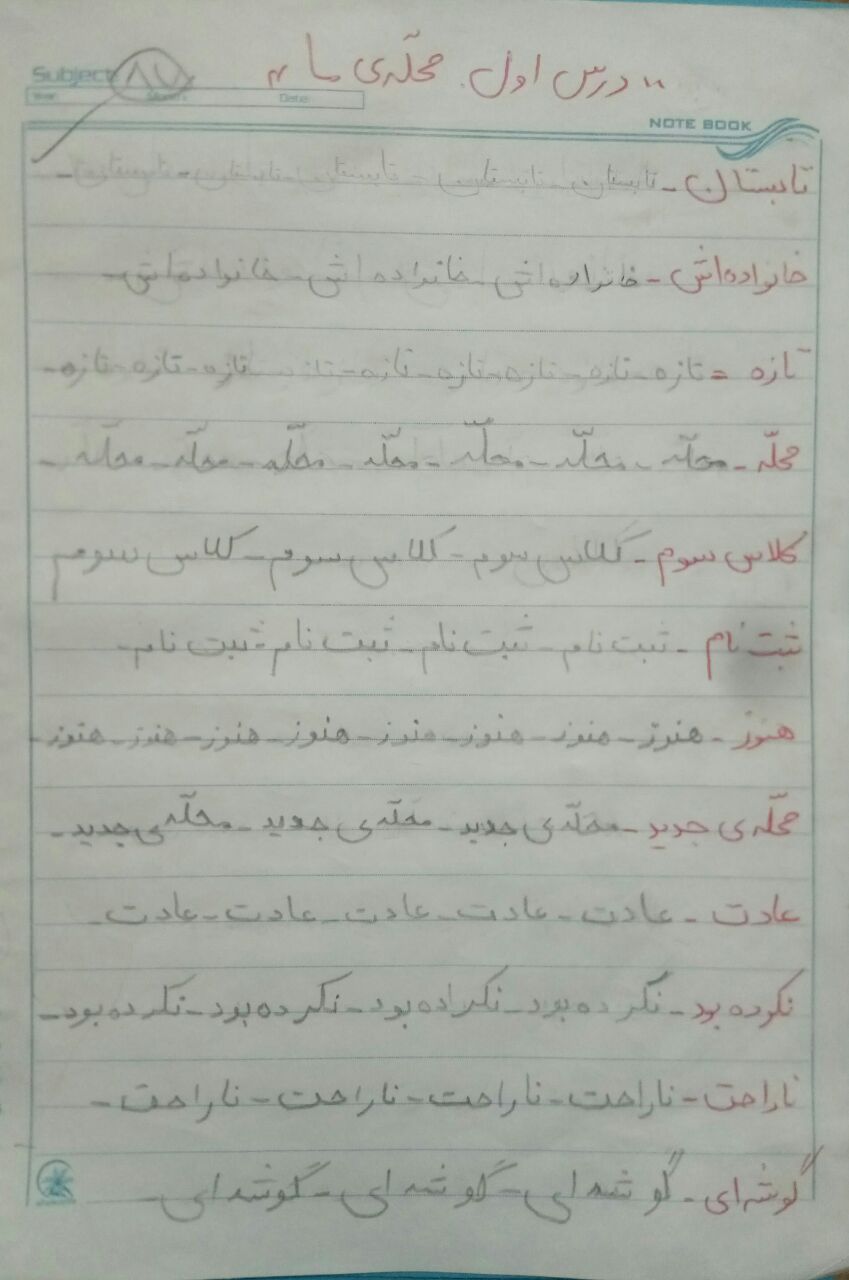 Subject:
«درس اول. محلّه‌ی ما»
Date:
NOTE BOOK
تابستان - تابستان - تابستان - تابستان - تابستان - تابستان -
خانواده‌اش - خانواده‌اش - خانواده‌اش - خانواده‌اش -
تازه = تازه - تازه - تازه - تازه - تازه - تازه - تازه - تازه -
محلّه - محلّه - محلّه - محلّه - محلّه - محلّه - محلّه - محلّه -
کلاس سوم - کلاس سوم - کلاس سوم - کلاس سوم
ثبت نام - ثبت نام - ثبت نام - ثبت نام - ثبت نام -
هنوز - هنوز - هنوز - هنوز - هنوز - هنوز - هنوز - هنوز -
محلّه‌ی جدید - محلّه‌ی جدید - محلّه‌ی جدید - محلّه‌ی جدید -
عادت - عادت - عادت - عادت - عادت - عادت -
نکرده بود - نکرده بود - نکراده بود - نکرده بود - نکرده بود -
ناراحت - ناراحت - ناراحت - ناراحت - ناراحت -
گوشه‌ای - گوشه‌ای - گوشه‌ای - گوشه‌ای -